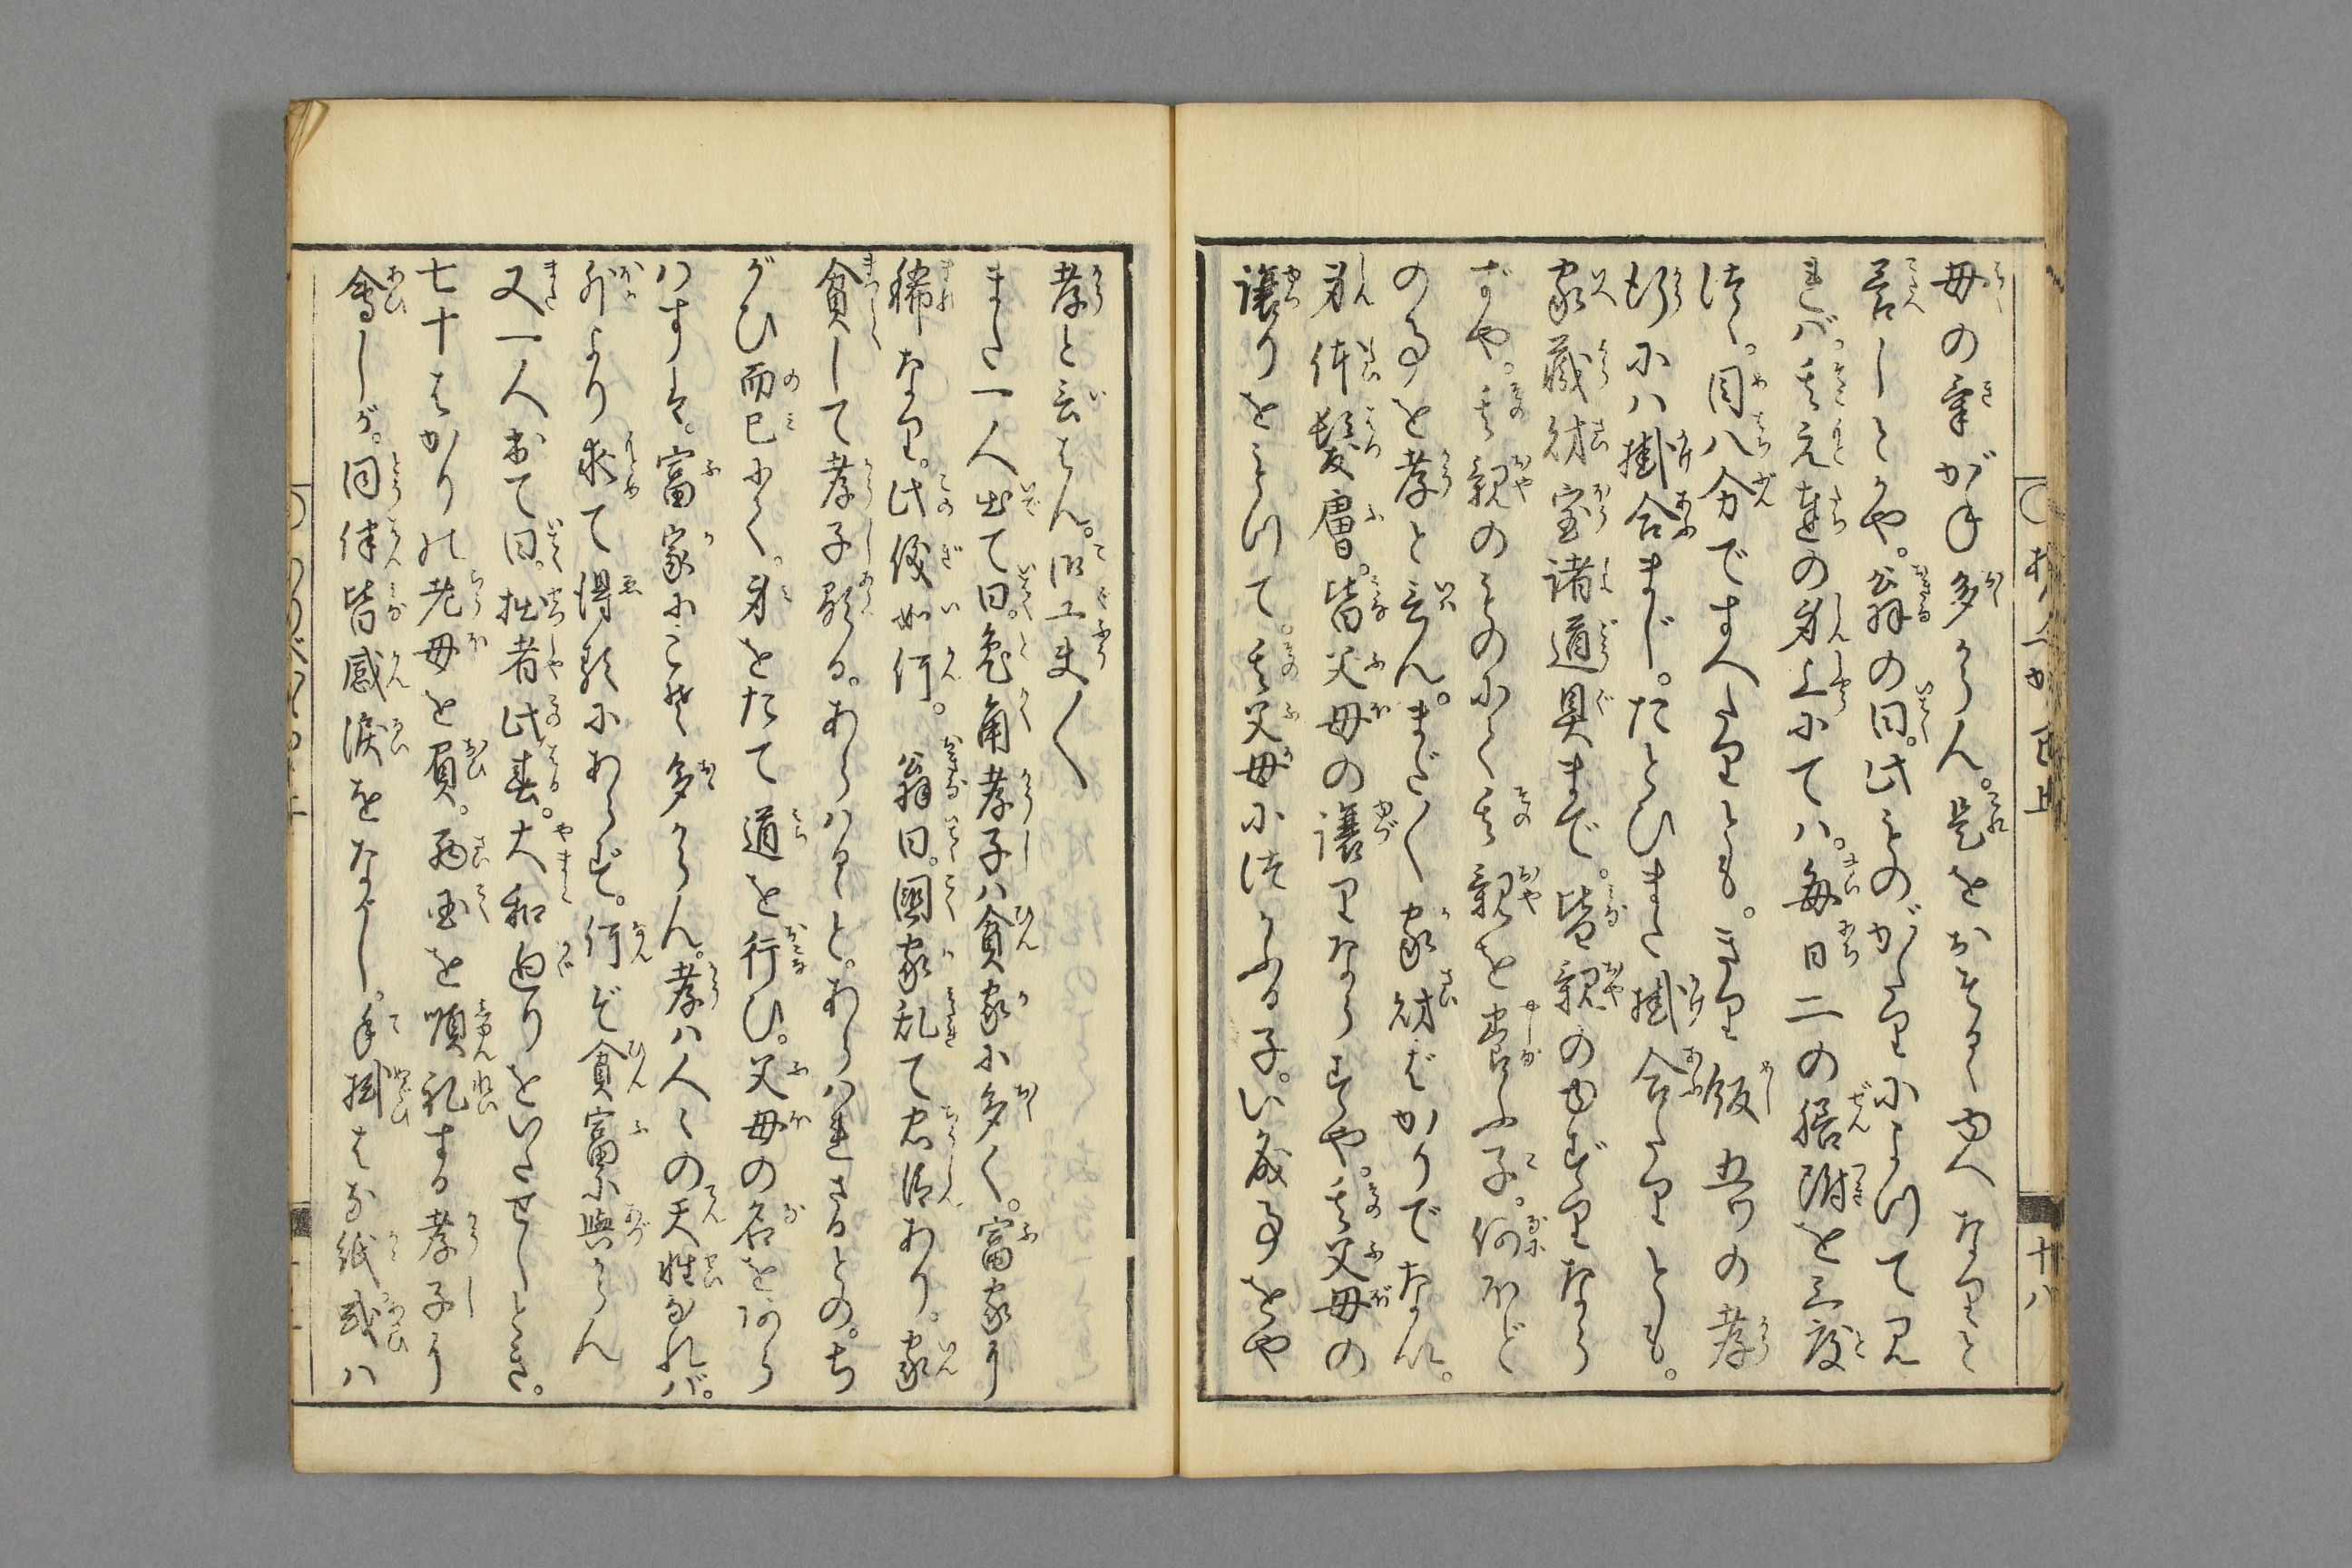 母の気がね多からん。是をおそるゝゆへなりと
答しとかや。翁の曰。此ものがたりによつて見
れバ。其元達の身上にてハ。毎日二の膳附を三度
づゝ。目八分ですへたりとも。まり飯五つの孝
行にハ掛合まじ。たとひまた掛合たりとも。
家蔵材宝諸道具まで。皆親のゆづりなら
ずや。其親のものにて其親を養ふ子。何ほど
の事を孝と言ん。まだ〳〵家財ばかりでない。
身体髪膚。皆父母の譲りならずや。其父母の
譲りをもつて。其父母に仕ふる子。いか成事をや
孝と言はん。御工夫〳〵
また一人出て曰。兎角孝子ハ貧家に多く。富家に
稀なり。此儀如何。翁曰。国家乱て忠臣あり。家
貧して孝子顕る。あらハるゝと。あらハれざるとの。ち
がひ而已にて。身をたて道を行ひ。父母の名をあら
ハすは。富家にこそ多からん。孝ハ人々の天性なれバ。
外より求て得類にあらず。何ぞ貧富に與からん
又一人出て曰。拙者此春。大和廻りをいたせしとき。
七十ばかりの老母を負。西国を順礼する孝子に
会しが。同伴皆感涙をながし。手掛はな紙或ハ
十八